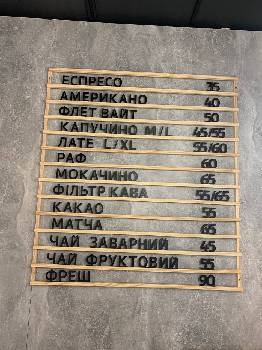 ЕСПРЕСО 35
АМЕРИКАНО 40
ФЛЕТ ВАЙТ 50
КАПУЧИНО M/L 45/55
ЛАТЕ L/XL 55/60
РАФ 60
МОКАЧИНО 65
ФІЛЬТР КАВА 55/65
КАКАО 55
МАТЧА 65
ЧАЙ ЗАВАРНИЙ 45
ЧАЙ ФРУКТОВИЙ 55
ФРЕШ 90